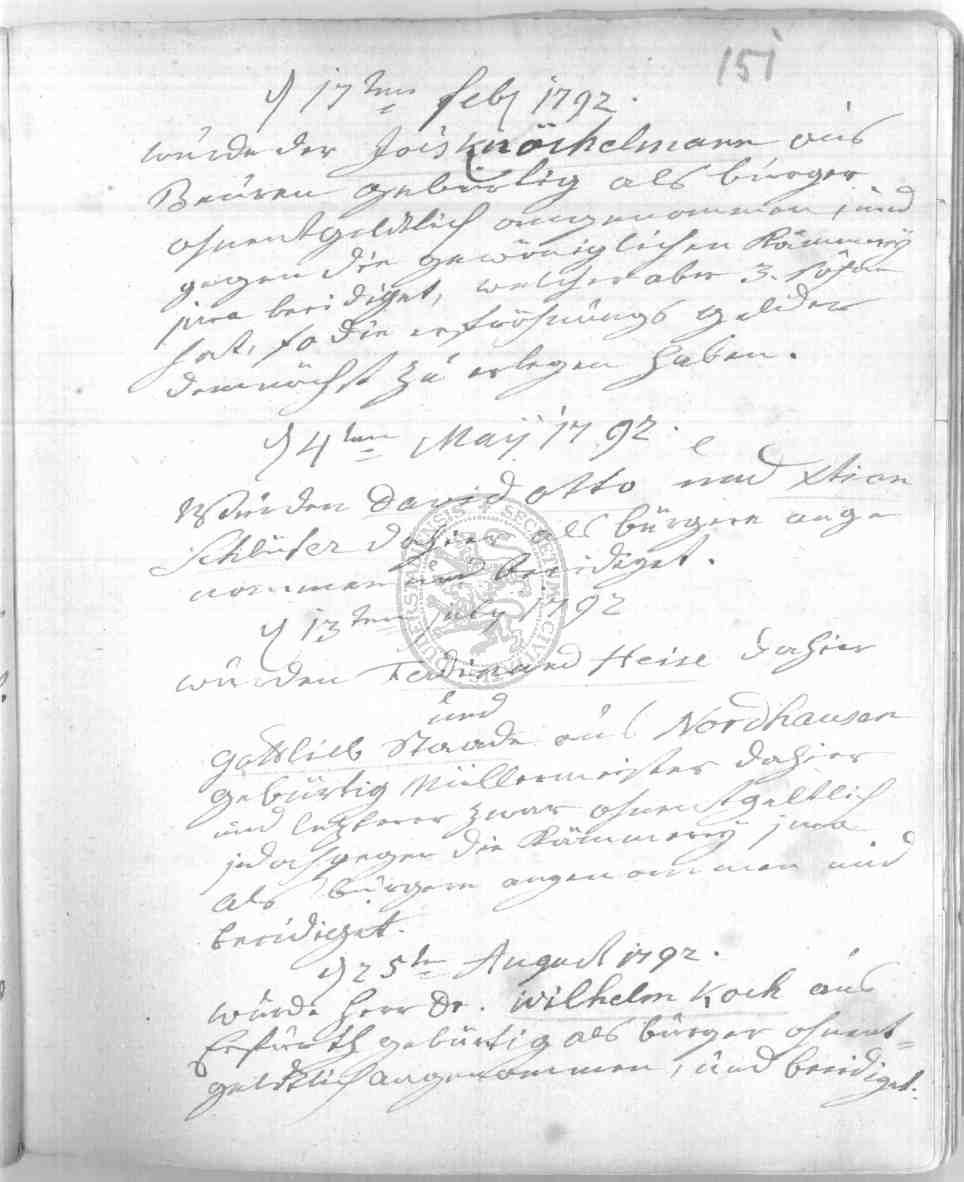 151
d 17ten feb 1792.
würde der Jois Knöchelmann aus
Beüren gebürtig als bürger
ohnentgeldtlich angenommen, und
gegen die gewöniglichen Kämmerey
jura beeidiget, welcher aber 3. söhne
hat, so die
demnächst zu erlegen haben.
d 4ten Maÿ 1792.
Würden David Otto und Xtian
Schlüter dahier als bürgere ange
nommen und beeidiget.
d 13ten July 1792
würden Ferdinand Heise dahier
und
Gottlieb Staade aus Nordhausen
gebürtig Müllermeister dahier
und lezterer zwar ohnentgeltlich
jedoch gegen die Kämmerey jura
als bürgere angenommen und
beeidiget.
d 25te August 1792.
würde Herr Dr. Wilhelm Koch aus
Erfurth gebürtig als bürger ohnent=
geldtlich angenommen, und beeidiget.